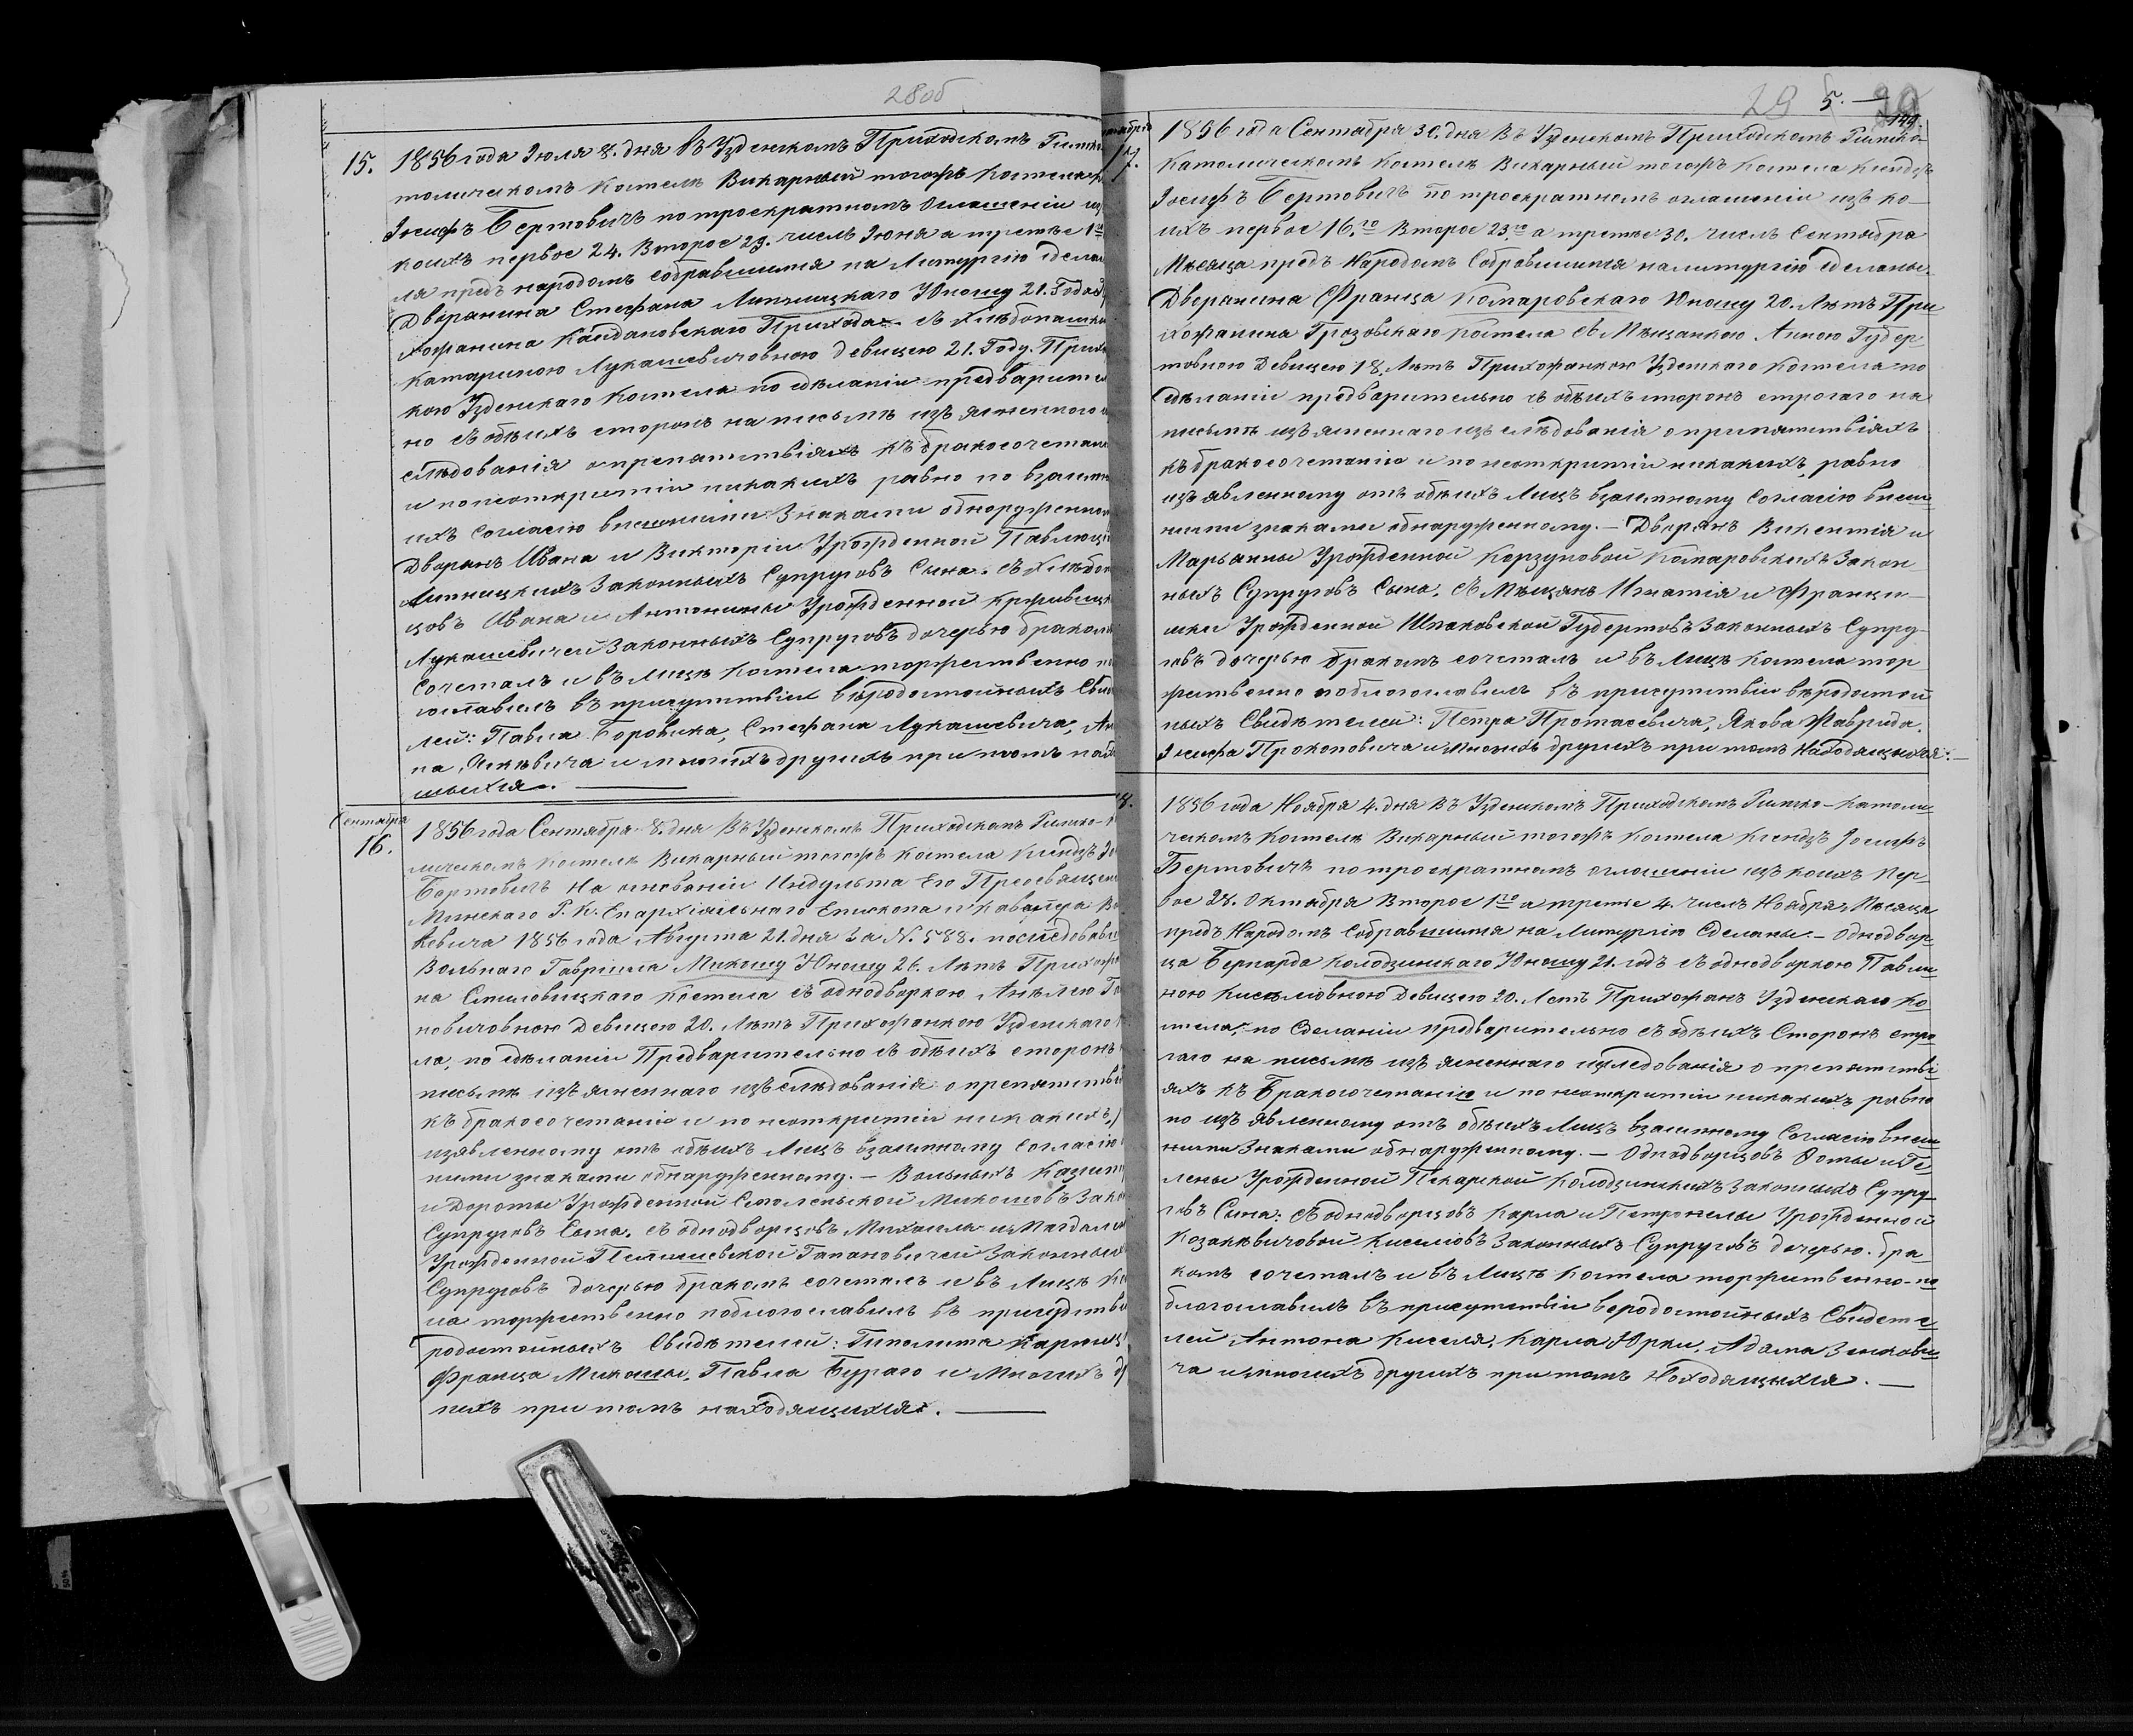 28об
15. 1856 года Іюля 8. дня въ Узденскомъ Приходскомъ Римско
толическомъ Костелѣ Викарный тогожъ Костела
Іосифъ Бертовичъ по троекратномъ Оглашеніи из
коихъ первое 24. Второе 29. числъ Іюня а третье 1го
ля предъ народомъ собравшимся на Литургію сдела
Дворянина Стефана Липницкаго Юношу 21. Года
хожанина Кайдановскаго Прихода. съ Хлѣбопашк
Катариною Лукашевичовною девицею 21. Году. Прихо
кою Узденскаго Костела по сдѣланіи предварител
но съ обѣихъ сторонъ на письмѣ изъясненного
слѣдованія о препятствіяхъ къ бракосочетан
и по неоткрытіи никакихъ равно по взаимн
ихъ согласію внешними Знаками обнаруженном
Дворянъ Ивана и Викторіи Урожденной Павлов
Липницкихъ Законныхъ Супруговъ Сына. съ Хлѣбоп
цовъ Ивана и Антонины Урожденной Крживицк
Лукашевичей Законныхъ Супруговъ дочерью бракомъ
Сочеталъ и въ Лицѣ Костела торжественно п
гославилъ въ присутствіи вѣродостойныхъ Сви
лей: Павла Боровика, Стефана Лукашевича, Ан
на, и многихъ другихъ при томъ нахо
шихся.
Сентября
16. 1856 года Сентября 8. дня Въ Узденскомъ Приходскомъ Римско-
лическомъ Костелѣ Викарный тогожъ Костела Ксендзъ Іо
Бертовичъ На основаніи Индульта Его Преосвящен
Минскаго Р. К. Епархіяльнаго Епископа и Кавалера Во
кевича 1856 года Августа 21. дня За N. 588. последовав
Вольнаго Гавріила Микошу Юношу 26. Лѣтъ Прихожа
на Смиловицкаго Костела съ однодворкою Анелею Га
новичовною Девицею 20. Лѣтъ Прихожанкою Узденскаго К
ла, по сдѣланіи Предварительно съ обѣихъ сторонъ
письмѣ изъясненнаго изъслѣдованія о препятствія
къ бракосочетаніи и по неоткрытіи никакихъ,
изявленному отъ обѣихъ Лицъ взаимному Согласію
ними знаками обнаруженному. — Вольныхъ Казим
и Дороты Урожденной Смоленьской Микошовъ Зако
Супруговъ Сына. съ однодворцовъ Михаила и Магдале
Урожденной Гапановичей Законных
Супруговъ дочерью бракомъ сочеталъ и въ Лицѣ Ко
ла торжественно поблогославилъ въ присудствіи
родостойныхъ Свидѣтелей: Гиполита
Франца Микоши, Павла Бураго и Многихъ д
гихъ при томъ находящихся.
29 5. — 30
199
тября
17. 1856 года Сентября 30. дня Въ Узденскомъ Приходскомъ Римско-
Католическомъ Костелѣ Викарный тогожъ Костела Ксендзъ
Іосифъ Бертовичъ по троекратномъ оглашеніи изъ ко-
ихъ первое 16.го Второе 23.го а третье 30. числъ Сентября
Мѣсяца предъ Народомъ Собравшимся на литургію сделаны
Дворянина Франца Комаровскаго Юношу 20. Лѣтъ При
хожанина Грозовскаго Костела съ Мѣщанкою Анною Гудер
товною Девицею 18. Лѣтъ Прихожанкою Узденскаго Костела по
Сдѣланіи предварительно съ обѣихъ сторонъ строгаго на
письмѣ изъясненнаго изъслѣдованія о припятствіяхъ
къ бракосочетанію и по неоткрытіи никакихъ, равно
изъявленному отъ обѣихъ Лицъ взаимному Согласію внеш
ними знаками обнаруженному. — Дворянъ Викентія и
Марьанны Урожденной Корзуновой Комаровскихъ Закон
ныхъ Супруговъ Сына. съ Мѣщанъ Игнатія и Францы-
шки Урожденной Шпаковской Гудертовъ Законныхъ Супру-
говъ дочерью бракомъ сочеталъ и въ Лицѣ Костела тор
жественно поблогославилъ въ присутствіи вѣродостой
ныхъ Свидѣтелей: Петра Протасевича, Якова Фаврида.
Іосифа Прокоповича и многихъ другихъ при томъ Находящихся. —
18. 1856 года Ноября 4. дня Въ Узденскомъ Приходскомъ Римско-Католи
ческомъ Костелѣ Викарный тогожъ Костела Ксендзъ Іосифъ
Бертовичъ по троекратномъ оглашеніи изъ коихъ Пер-
вое 28. Октября Второе 1го а третье 4. числъ Ноября Мѣсяца
предъ Народомъ Собравшимся на Литургію Сделаны. — Однодвор
ца Бернарда Колодзинскаго Юношу 21. годъ съ однодворкою Павли
ною Киселювною Девицею 20. Летъ Прихожанъ Узденскаго Ко
стела, по Сделаніи предварительно съ обѣихъ Сторонъ стро
гаго на письмѣ изъясненнаго изследованія о препятстві
яхъ къ Бракосочетанію и по неоткрытіи никакихъ равно
по изъявленному отъ обѣихъ Лицъ взаимному Согласію внеш
ними Знаками обнаруженному. — Однодворцовъ Фомы и Ге
лены Урожденной Пекарской Колодзинскихъ Законныхъ Супру
говъ Сына: съ однодворцовъ Карла и Петронелы Урожденной
Козакѣвичовой Киселювъ Законныхъ Супруговъ дочерью. бра
комъ сочеталъ и въ Лицѣ Костела торжественно по
благославилъ въ присутствіи веродостойныхъ Свидете
лей Антона Киселя, Карла Юрки, Адама Зенкови
ча и многихъ другихъ при томъ Находящихся. —